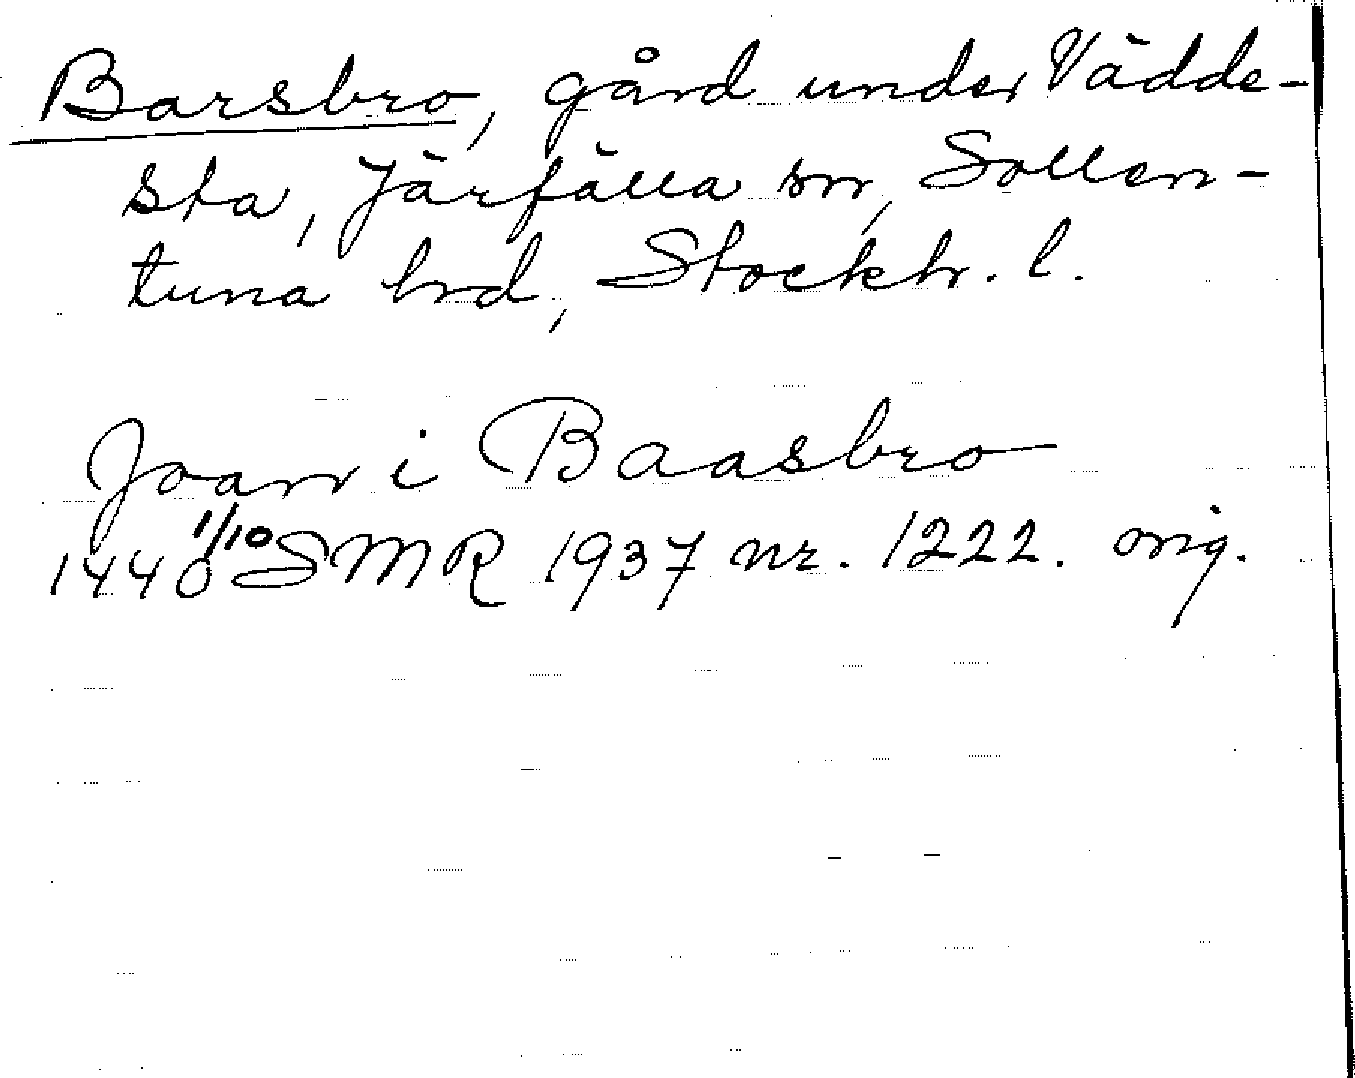 Barsbro, gård under Vädde-
sta, Järfälla sn, Sollen-
tuna hd, Stockh. l.
Joan i Baasbro
1440 1/10 SMR 1937 nr. 1222. orig.